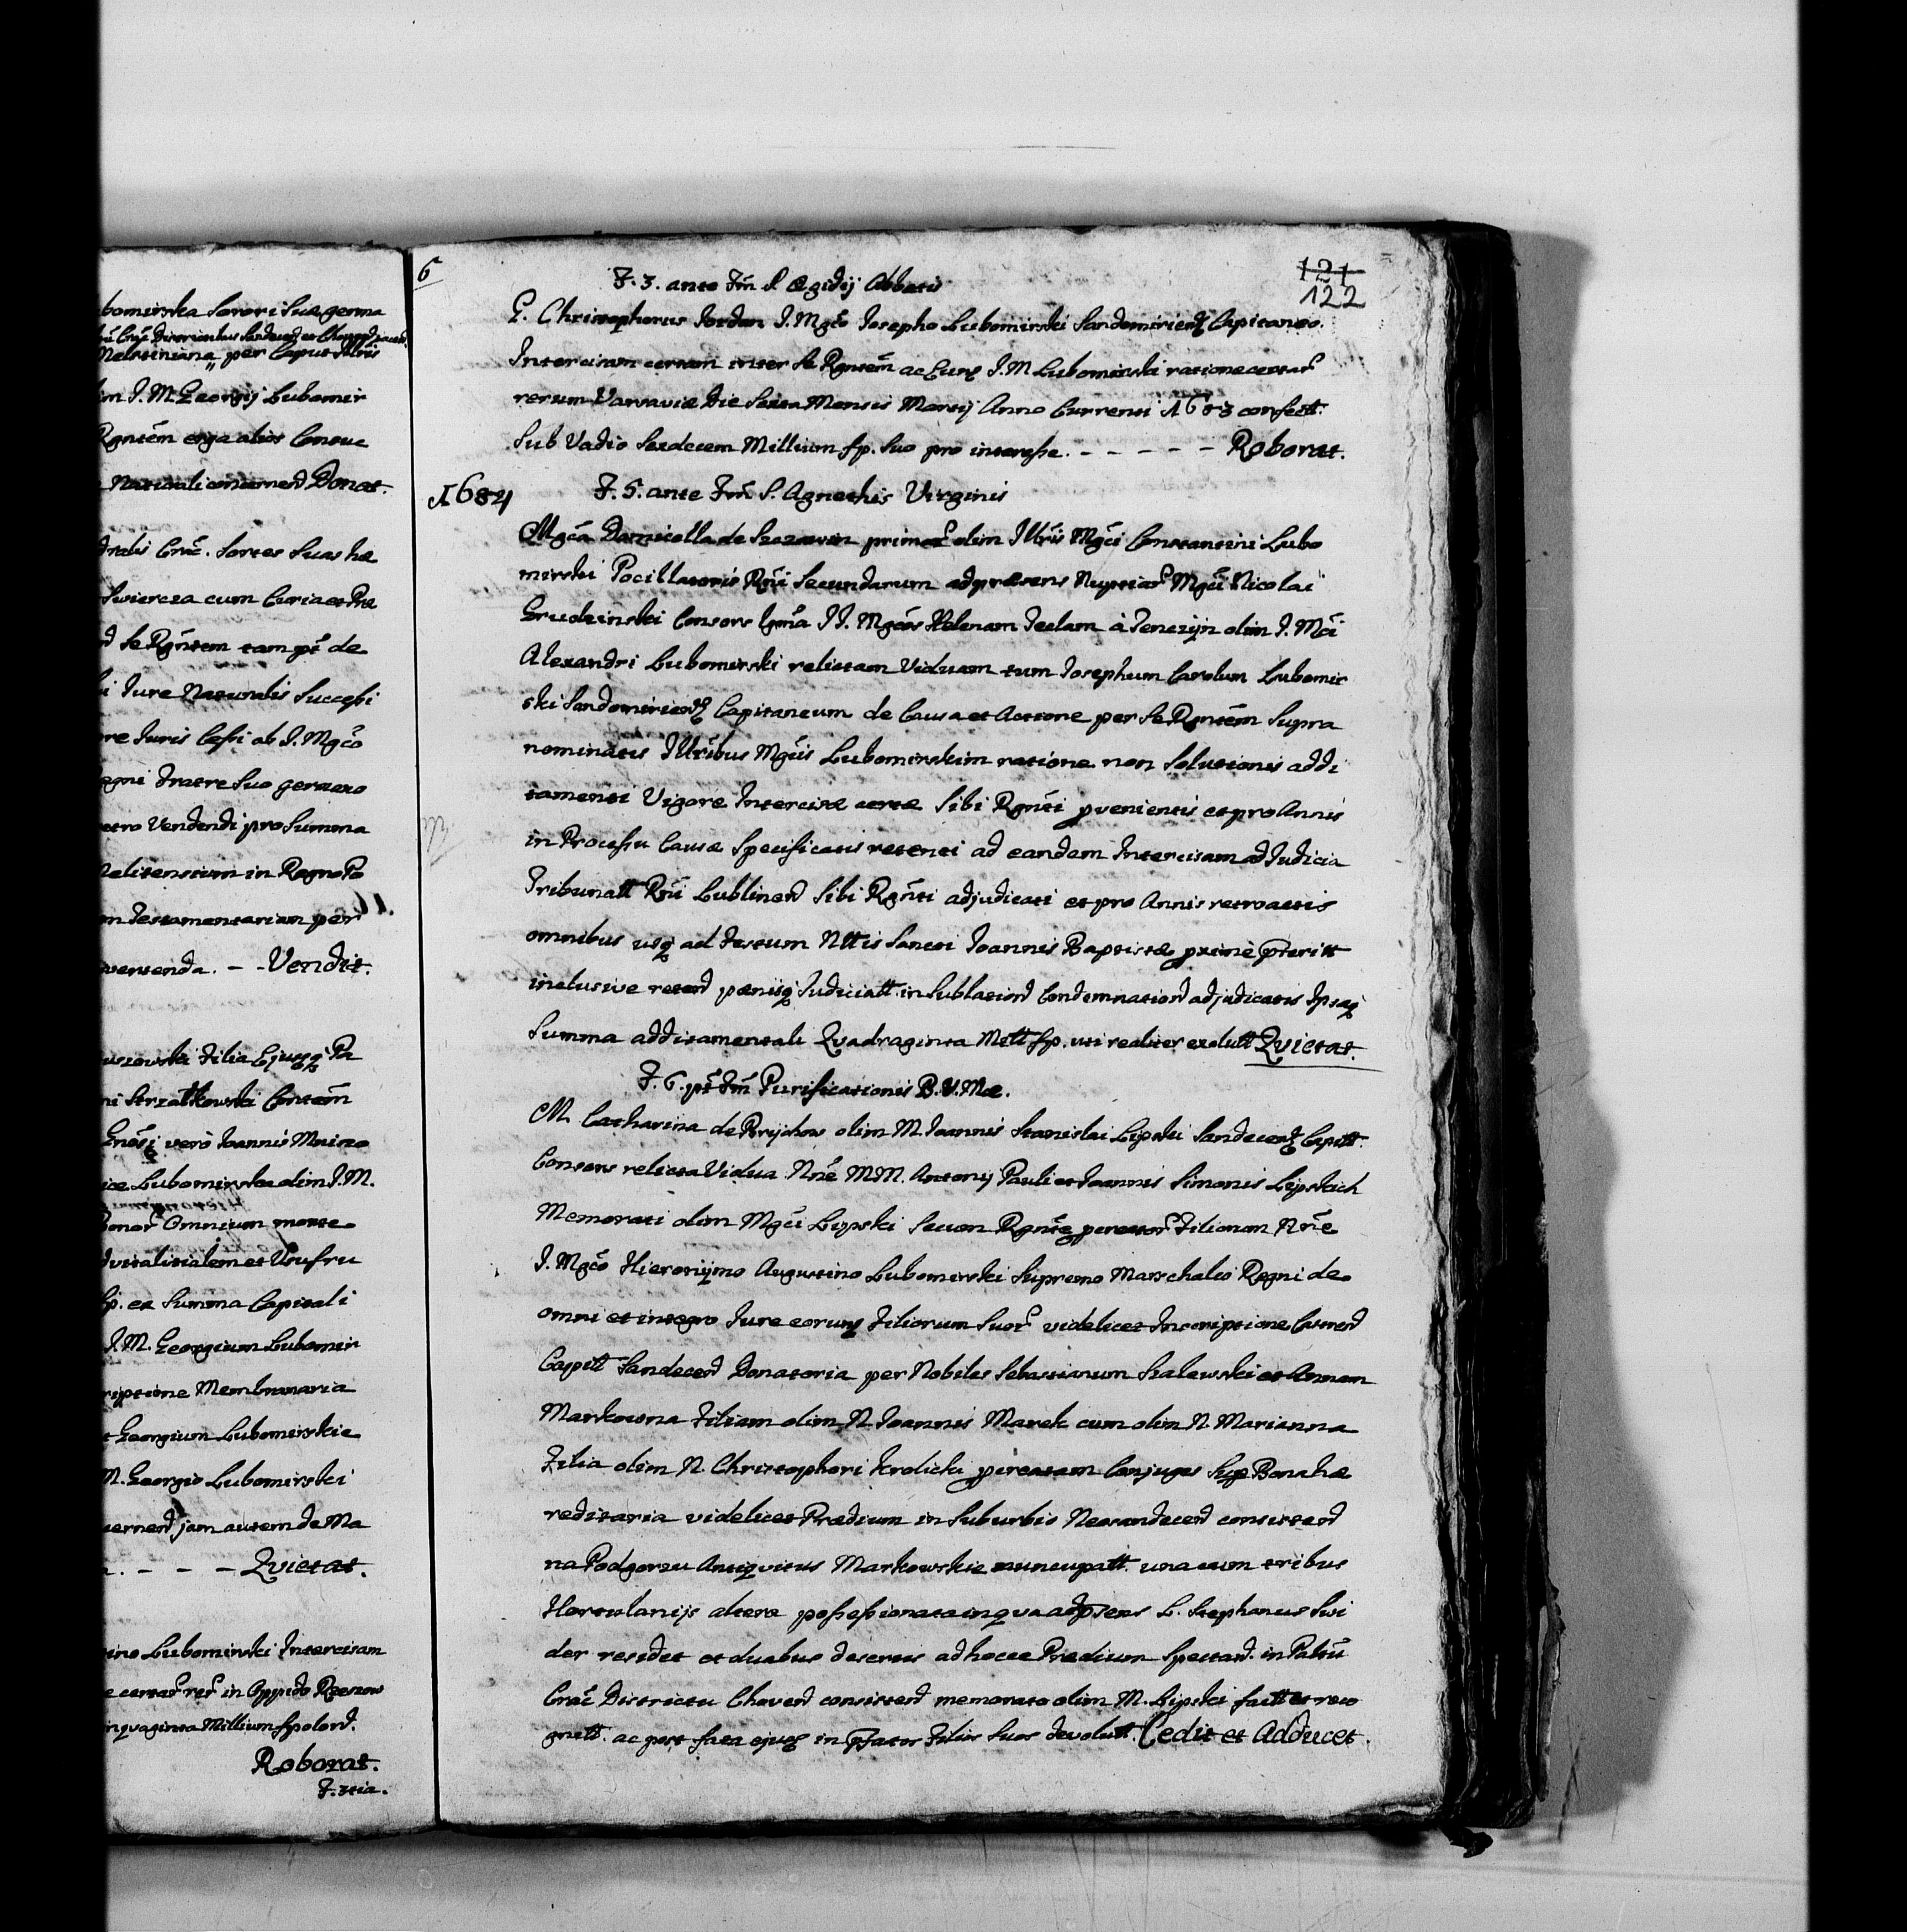 bomirska Sorori Suae germa
Melstiniana per Caput Illris
im I. M. Georgij Lubomir
Rgntem erga alios Conque
Naturali concernend Donat.
dralis Crac. Sortes Suas hae
Swiercza cum Curia et Prae
d Se Rgntem tam pt de
i Iure Naturalis Successi
re Iuris Cessi ab I. Mgco
egni Fratre Suo germano
etro Vendendi pro Summa
Melitensium in Regno Po
m Testamentariam per
vertenda. - - Vendit.
uszowski Filia Ejusq Pa
ni Strzałkowski Contem
Gnosi vero Ioannis Mnizo
ice Lubomirska olim I. M.
Bonor Omnium morte
dvitalitialem et Usufru
fp. ex Summa Capitali
I. M. Georgium Lubomir
riptione Membranaria
t Georgium Lubomirskie
M. Georgio Lubomirski
vernend jam autem de Ma
- - - Qvietat.
ino Lubomirski Intercisam
e certar rer in Oppido Rzeszow
inqvaginta Millium fpolond.
Roborat.
F. 3tia.
6
121
122
F. 3. ante Fm S. Ægidij Abbatis
G. Christophorus Iordan I. Mgco Iosepho Lubomirski Sandomiriens Capitaneo.
Intercisam certam inter Se Rgntem ac Eunq I. M Lubomirski ratione certar
rerum Varsaviae Die Sexta Mensis Martij Anno Currenti 1683 confect.
Sub Vadio Sexdecem Millium fp. Suo pro interesse. - - - - - Roborat.
1684
F. 5. ante Fm S. Agnethis Virginis
Mgca Domicella de Szczawin primor olim Illris Mgci Constantini Lubo
mirski Pocillatoris Rni Secundarum ad praesens Nuptiar Mgci Nicolai
Grudzinski Consors Igma II. Mgcos Helenam Teclam à Tenczyn olim I. Mci
Alexandri Lubomirski relictam Viduam tum Iosephum Carolum Lubomir
ski Sandomiriens Capitaneum de Causa et Actione per Se Rgntem Supra
nominatis Illribus Mgcis Lubomirskim ratione non Solutionis addi
tamenti Vigore Intercisae certae Sibi Rgnti pvenientis et pro Annis
in Processu Causae Specificatis retenti ad eandem Intercisam ad Iudicia
Tribunall Rni Lublinen Sibi Rgnti adjudicati et pro Annis retroactis
omnibus usq ad Festum Nttis Sancti Ioannis Baptistae pxime pterit
inclusive retend paenisq Iudiciall in Sublation Condemnation adjudicatis Ipsaq
Summa additamentali Qvadraginta Mill fp. uti realiter exolut Qvietat.
F. 6. pt Fm Purificationis B. V. Mae.
M. Catharina de Brzychow olim M. Ioannis Stanislai Lipski Sandecens Capitt.
Consors relicta Vidua Nne MM. Antonij Pauli et Ioannis Simonis Lipskich
Memorati olim Mgci Lipski Secum Rgnte pcreator Filiorum Nne
I. Mgco Hieronymo Augustino Lubomirski Supremo Marschalco Regni de
omni et integro Iure eorunq Filiorum Suor videlicet Inscriptione Castren
Capitt Sandecen Donatoria per Nobiles Sebastianum Szalewski et Annam
Markowna Filiam olim N. Ioannis Marek cum olim N. Marianna
Filia olim N. Christophori Krolicki pcreatam Conjuges Sup Bona hae
reditaria videlicet Praedium in Suburbio Neosandecen consistend
na Podgorzu Antiqvitus Markowskie nuncupatt. una cum tribus
Hortulanijs altera possessionata in qva ad psens L. Stephanus Swi
der residet et duabus desertis ad hocce Praedium Spectand. in Paltu
Crac Districtu Choven consistend memorato olim M. Lipski fact et reco
gnitt. ac post fata ejusq in pfatos Filios Suos devolutt. Cedit et Adducet.